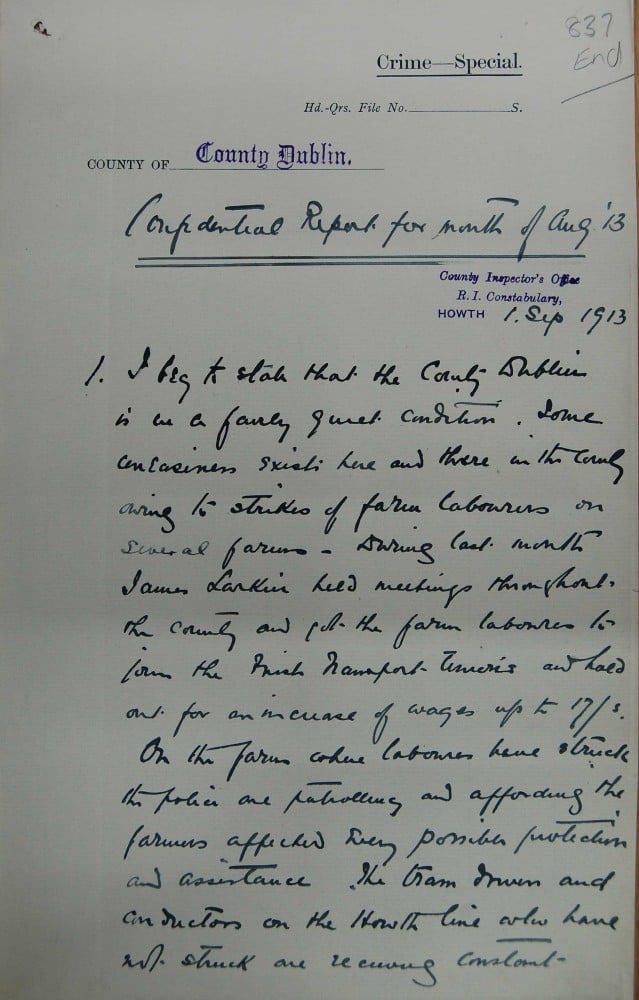 837
End
Crime—Special.
Hd.-Qrs. File No. S.
COUNTY OF County Dublin.
Confidential Report for month of Aug '13
County Inspector's Office
R. I. Constabulary,
HOWTH 1. Sep 1913
1. I beg to state that the County Dublin
is in a fairly quiet condition. Some
uneasiness exists here and there in the County
owing to strikes of farm labourers on
several farms – During last month
James Larkin held meetings throughout
the County and got the farm labourers to
join the Irish Transport Union and hold
out for an increase of wages up to 17/s.
On the farms where labourers have struck
the police are patrolling and affording the
farmers affected every possible protection
and assistance. The tram drivers and
conductors on the Howth line who have
not struck are receiving constant